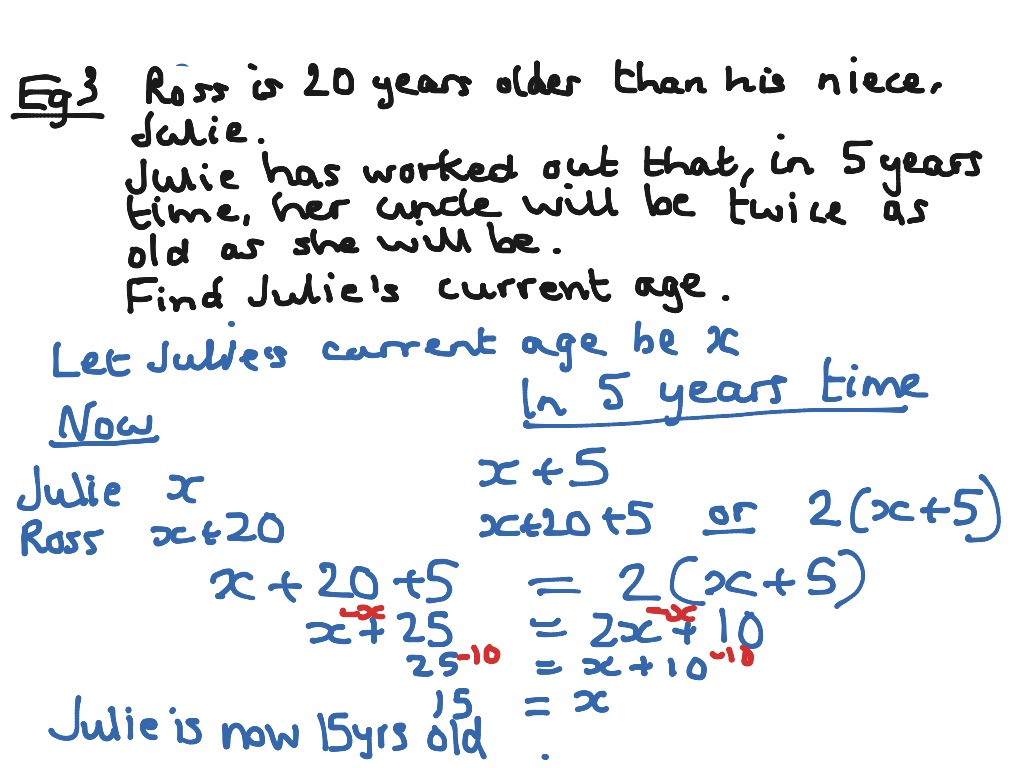 Eg 3 Ross is 20 years older than his niece,
Julie.
Julie has worked out that, in 5 years
time, her uncle will be twice as
old as she will be.
Find Julie's current age.
Let Julie's current age be x
Now In 5 years time
Julie x x + 5
Ross x+20 x+20+5 or 2(x+5)
x + 20 + 5 = 2(x+5)
-x -x
x + 25 = 2x + 10
25 -10 = x + 10 -10
15 = x
Julie is now 15yrs old.